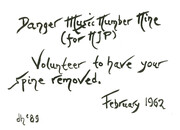 Danger Music Number Nine
(for NJP)
Volunteer to have your
spine removed.
February 1962
dh '89